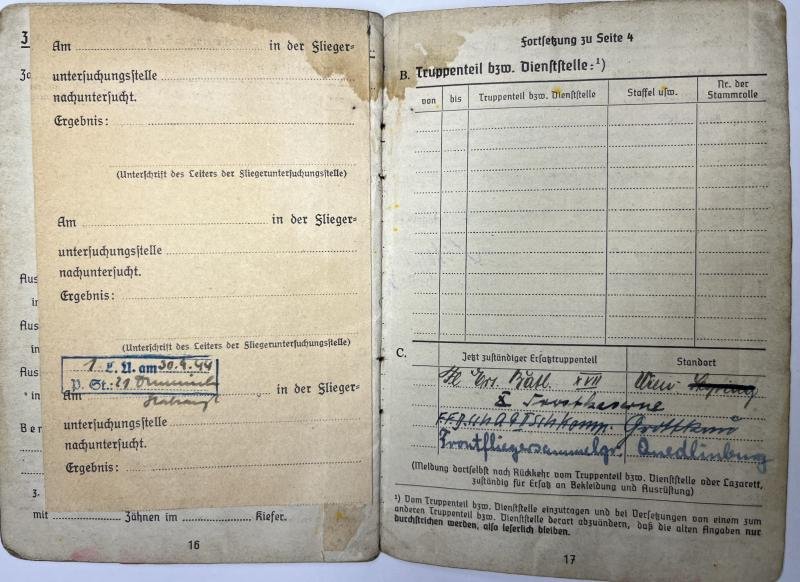 3
Za
Am in der Flieger=
untersuchungsstelle
nachuntersucht.
Ergebnis:
(Unterschrift des Leiters der Fliegeruntersuchungsstelle)
Am in der Flieger=
untersuchungsstelle
nachuntersucht.
Ergebnis:
(Unterschrift des Leiters der Fliegeruntersuchungsstelle)
Aus
in
Aus
in
Aus
in
Ber
1. L. U. am 30.4.44
P. St.: 21
Am in der Flieger=
untersuchungsstelle
nachuntersucht.
Ergebnis:
3.
mit Zähnen im Kiefer.
16
Fortsetzung zu Seite 4
B. Truppenteil bzw. Dienststelle:¹)
von bis Truppenteil bzw. Dienststelle Staffel usw. Nr. der Stammrolle
C. Jetzt zuständiger Ersatztruppenteil Standort
Fl. Ers. Batl. XVII Wien
Grottkau
Frontfliegersammelgr. Quedlinburg
(Meldung dortselbst nach Rückkehr vom Truppenteil bzw. Dienststelle oder Lazarett,
zuständig für Ersatz an Bekleidung und Ausrüstung)
¹) Vom Truppenteil bzw. Dienststelle einzutragen und bei Versetzungen von einem zum
anderen Truppenteil bzw. Dienststelle derart abzuändern, daß die alten Angaben nur
durchstrichen werden, also leserlich bleiben.
17